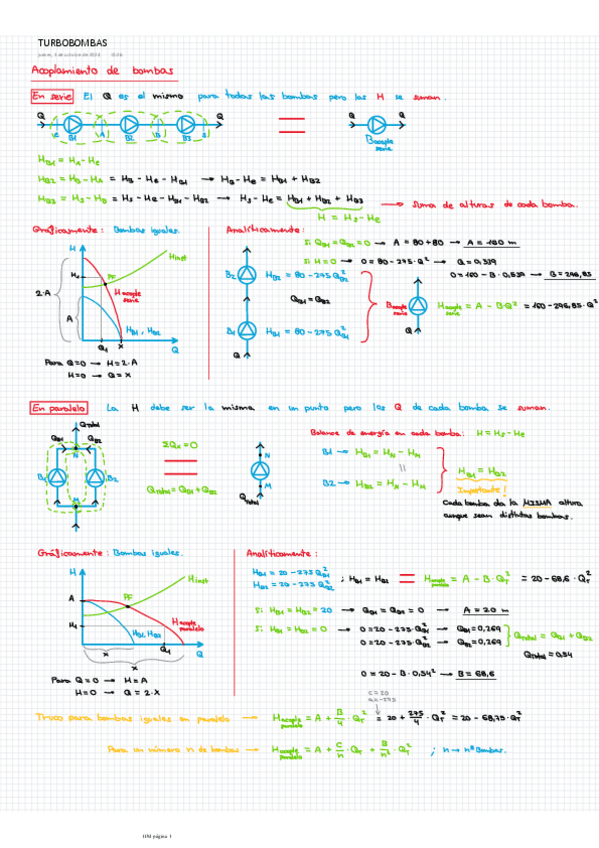 TURBOBOMBAS
Acoplamiento de bombas
En serie El Q es el mismo para todas las bombas pero las H se suman.
Q e B1 A B2 B B3 S Q = Q Bacople serie Q
HB1 = HA - He
HB2 = HB - HA = HB - He - HB1 → HB - He = HB1 + HB2
HB3 = HS - HB = HS - He - HB1 - HB2 → HS - He = HB1 + HB2 + HB3 → Suma de alturas de cada bomba.
H = HS - He
Gráficamente: Bombas iguales.
H
Hinst
H1
PF
Hacople serie
2·A
A
HB1, HB2
Q1 x Q
Para Q=0 → H=2·A
H=0 → Q=x
Analíticamente:
Si QB1 = QB2 = 0 → A = 80+80 → A = 160 m
Si H = 0 → 0 = 80 - 275·Q² → Q = 0,539
0 = 160 - B·0,539 → B = 296,85
B2 HB2 = 80 - 275 QB2²
QB1 = QB2
B1 HB1 = 80 - 275 QB1²
Q
Bacople serie Hacople serie = A - B·Q² = 160 - 296,85·Q²
Q
En paralelo La H debe ser la misma en un punto pero los Q de cada bomba se suman.
Qtotal
QB1 QB2
N
B1 B2
M
ΣQx = 0
Qtotal = QB1 + QB2
N
M
Qtotal
Balance de energía en cada bomba: H = HS - He
B1 → HB1 = HN - HM
B2 → HB2 = HN - HM
HB1 = HB2
Importante!
Cada bomba da la MISMA altura
aunque sean distintas bombas.
Gráficamente: Bombas iguales.
H
Hinst
A
PF
H1
Hacople paralelo
HB1, HB2 Q1 Q
x
x
Para Q=0 → H=A
H=0 → Q=2·x
Analíticamente:
HB1 = 20 - 275 QB1²
HB2 = 20 - 275 QB2²
; HB1 = HB2 = Hacople paralelo = A - B·QT² = 20 - 68,6·QT²
Si HB1 = HB2 = 20 → QB1 = QB2 = 0 → A = 20 m
Si HB1 = HB2 = 0 → 0 = 20 - 275·QB1² → QB1 = 0,269
0 = 20 - 275·QB2² → QB2 = 0,269
Qtotal = QB1 + QB2
Qtotal = 0,54
0 = 20 - B·0,54² → B = 68,6
Truco para bombas iguales en paralelo → Hacople paralelo = A + B/4·QT² = 20 + 275/4·QT² = 20 - 68,75·QT²
Para un número n de bombas → Hacople paralelo = A + C/n·QT + B/n²·QT² ; n → nº Bombas.
IIM página 1